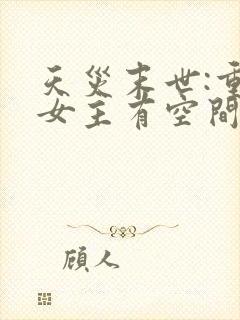 天災末世:重
女主有空間
顧人